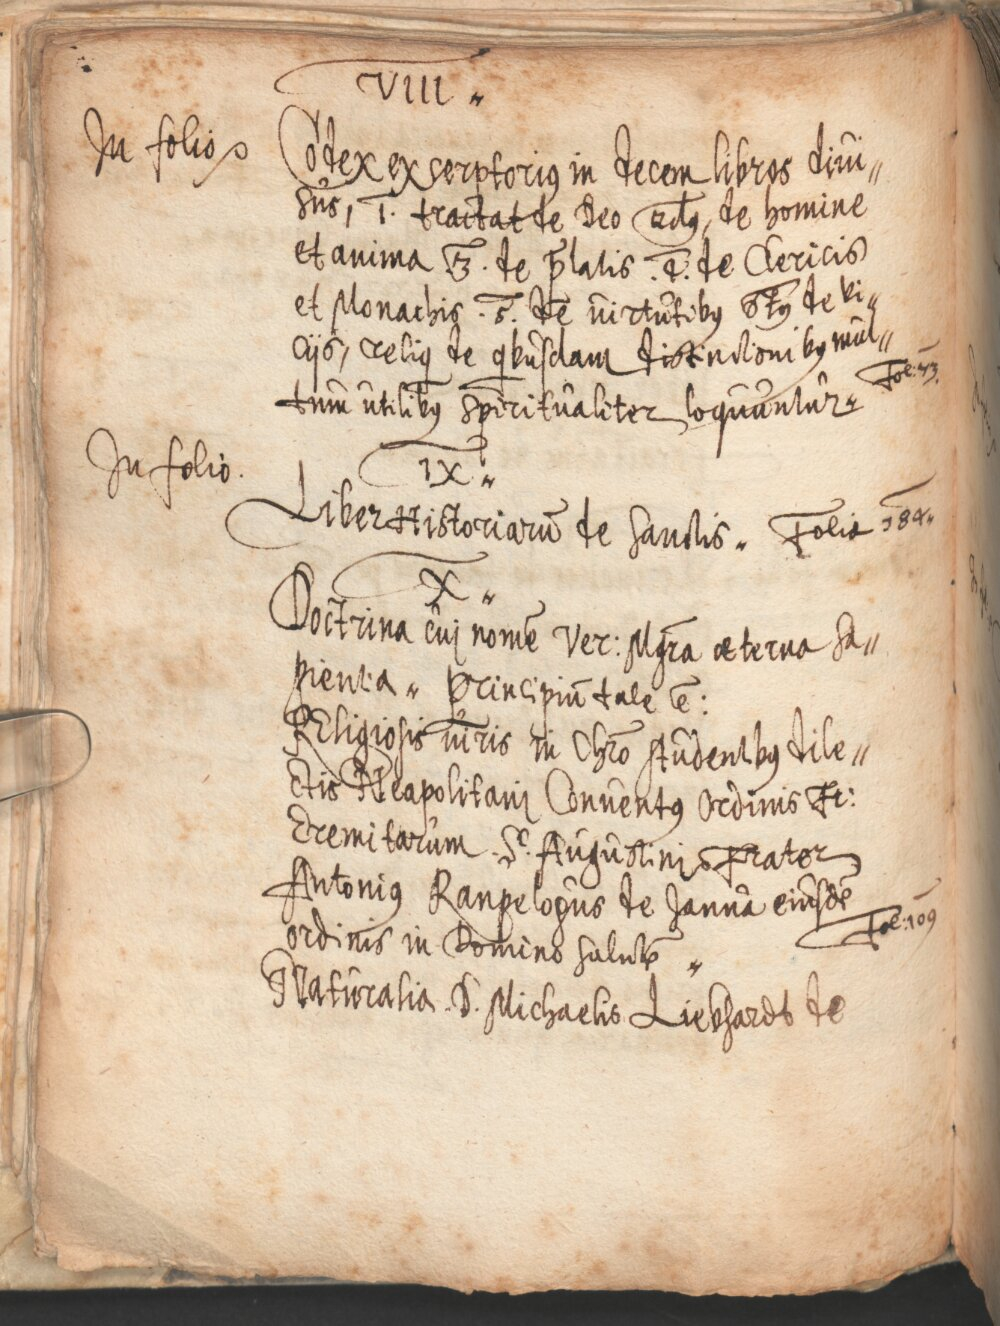 VIII
In folio
Codex excerptoriꝰ in decem libros divi„
sus, 1. tractat de Deo 2dꝰ, de homine
et anima 3. de p̄latis .4. de Clericis
et Monachis .5. de virtutibꝰ 6tꝰ de vi„
cijs, reliq de qbusdam distinctionibꝰ mul„
tum utilibꝰ spiritualiter loquuntur
Fol: 73.
IX
In folio.
Liber Historiarū de Sanctis. Folia 184
X
Doctrina cui nomē Ver: Mgr̄a æterna Sa„
pientia „ Principiū tale ē:
Religiosis viris in Chr̄o studentibꝰ dile„
ctis Neapolitani Conventꝰ Ordinis Fr:
Eremitarum S. Augustini Frater
Antoniꝰ Rampelogus de Janua eiusdē
ordinis in Domino Salutē
Fol: 109
Naturalia D. Michaelis Liebhardt de